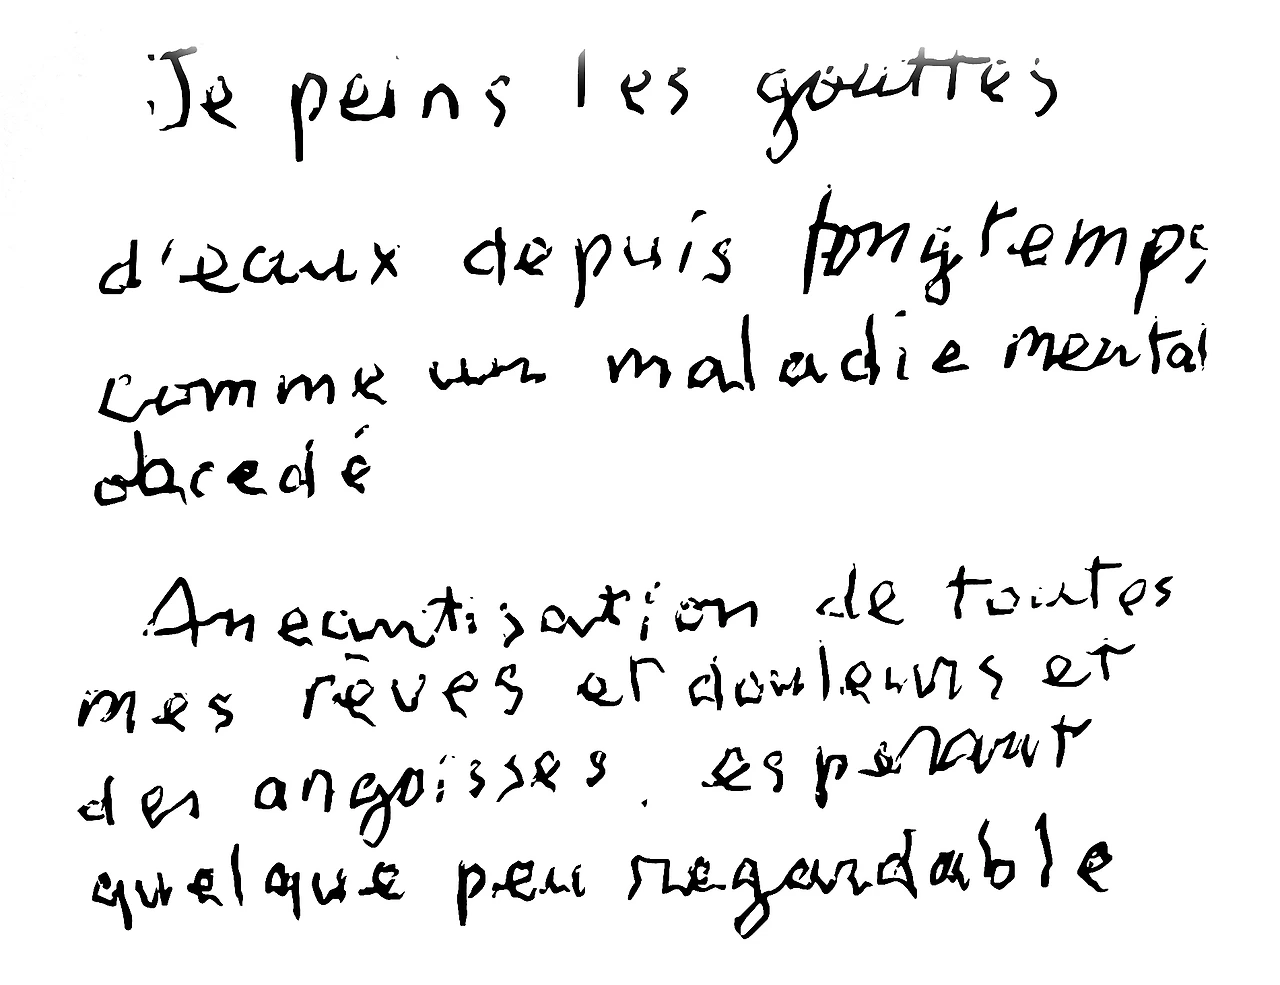 Je peins les gouttes
d'eaux depuis longtemps
comme un maladie mental
obcedé
Aneantisation de toutes
mes rêves et douleurs et
des angoisses. esperant
quelque peu regardable